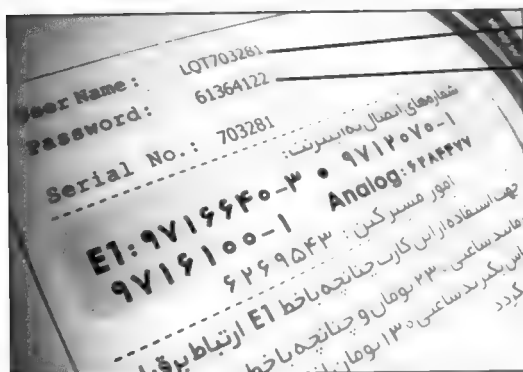 User Name: LQT703281
Password: 61364122
Serial No.: 703281
شماره‌های اتصال به اینترنت:
E1: ۹۷۱۶۶۴۰-۳ • ۹۷۱۲۰۷۰-۱
۹۷۱۶۱۰۰-۱ Analog: ۶۲۸۴۴۷۷
امور مشترکین: ۶۲۶۹۵۴۳
جهت استفاده از این کارت چنانچه با خط E1 ارتباط برقرار
نمایید ساعتی ۲۳۰ تومان و چنانچه با خط
تماس بگیرید ساعتی ۱۳۰ تومان
گردد